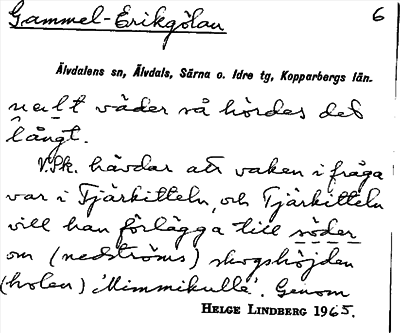 Gammel-Erikgölan
6
Älvdalens sn, Älvdals, Särna o. Idre tg, Kopparbergs län.
nalt väder så hördes det
långt.
V.Sk. hävdar att vaken i fråga
var i Tjärkitteln, och Tjärkitteln
vill han förlägga till söder
om (nedströms) skogshöjden
(holen) 'Mimmikulla'. Genom
HELGE LINDBERG 1965.